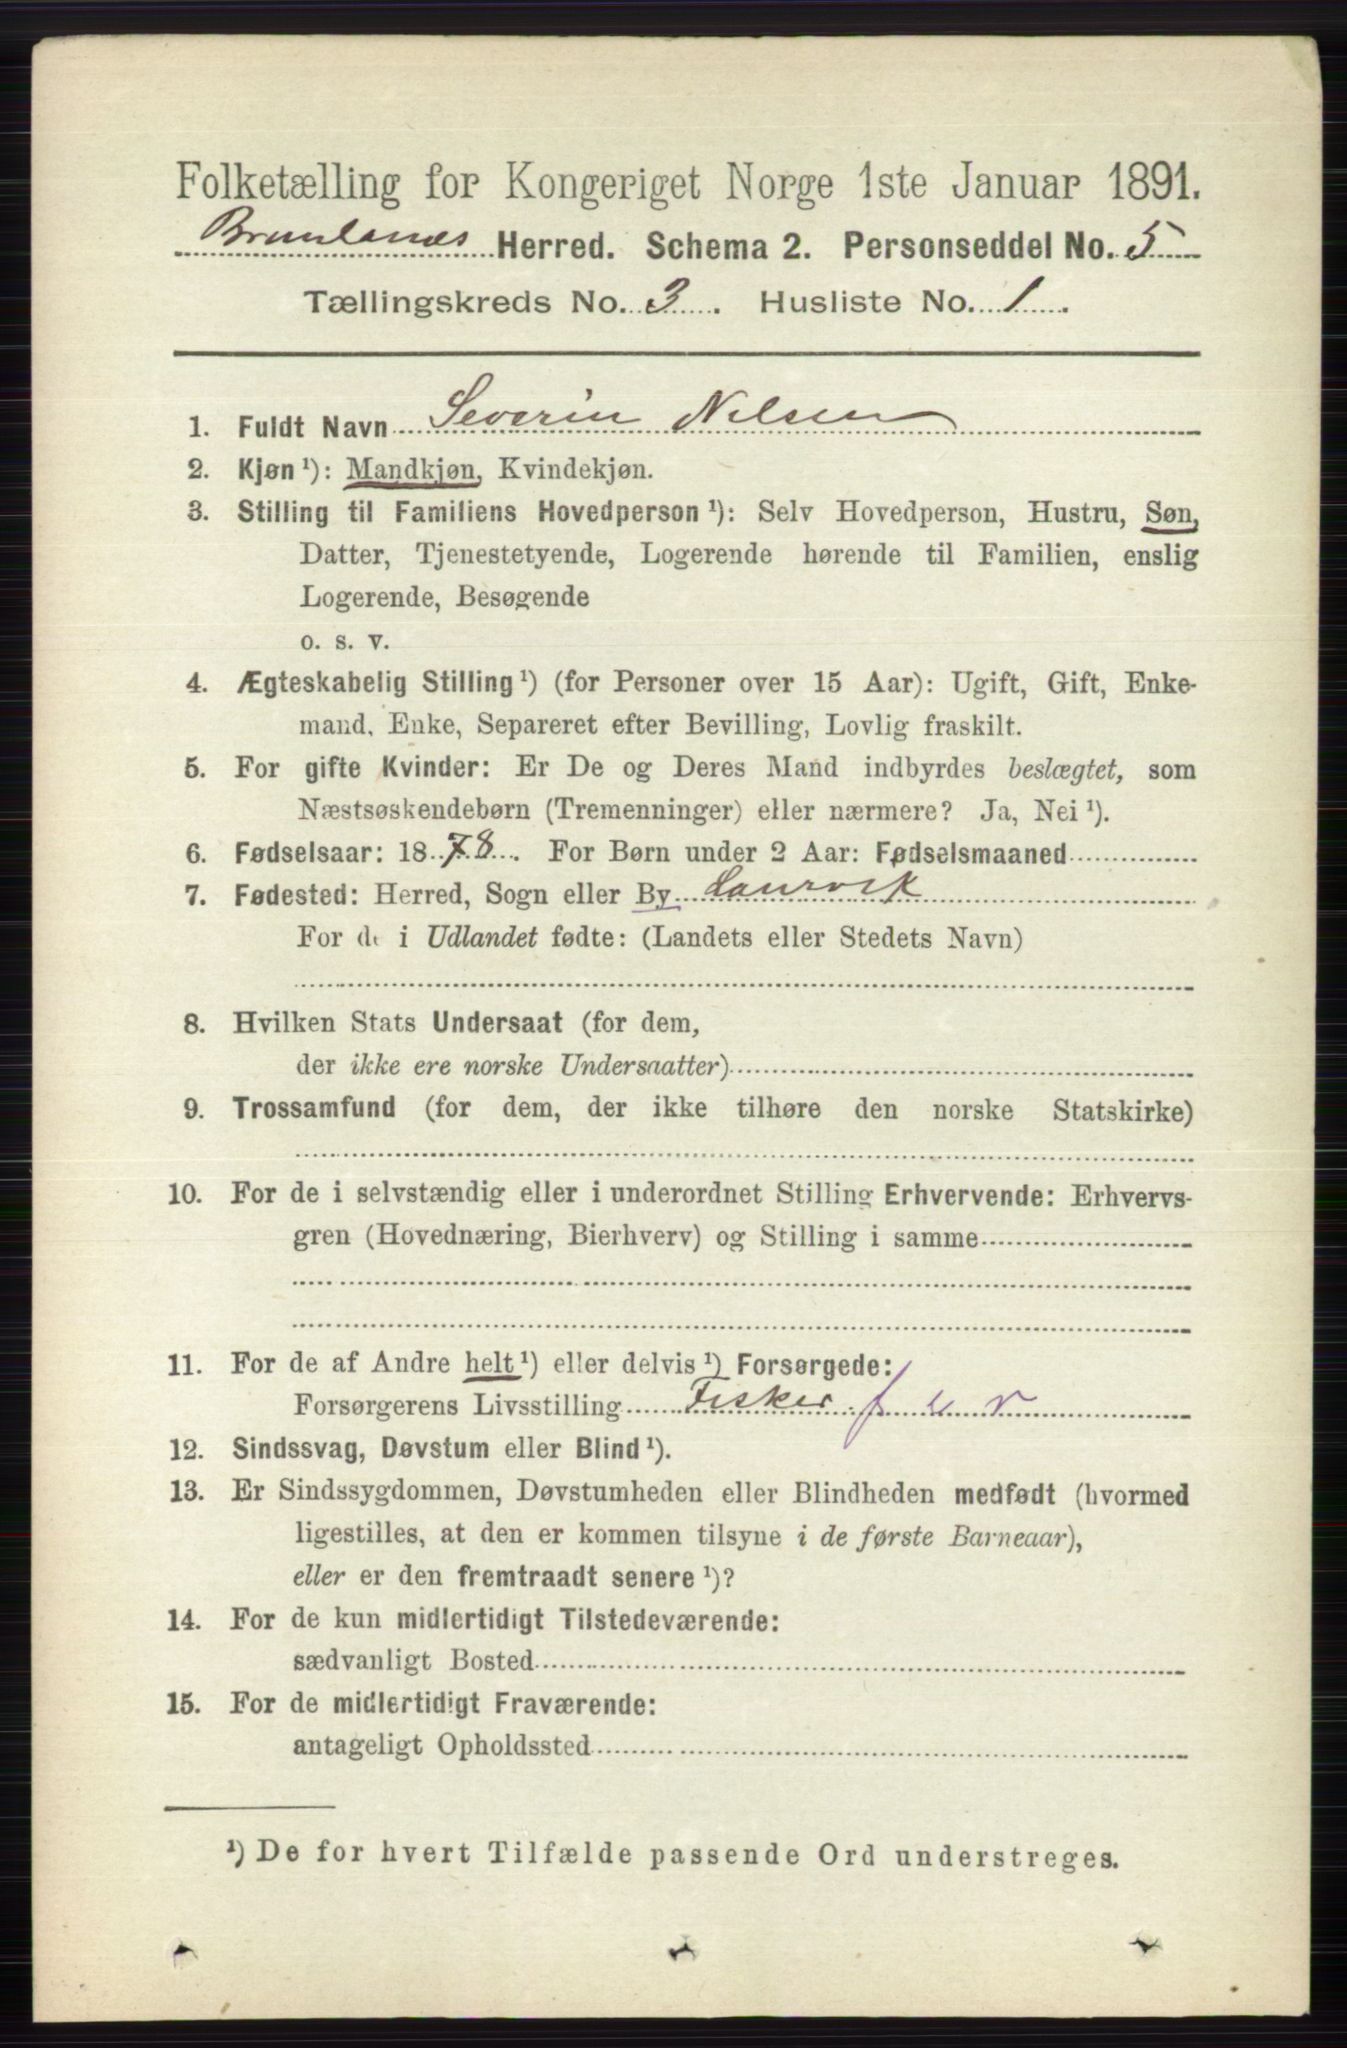 Folketælling for Kongeriget Norge 1ste Januar 1891.
Brunlanes Herred. Schema 2. Personseddel No. 5
Tællingskreds No. 3. Husliste No. 1.
1. Fuldt Navn Severin Nilsen
2. Kjøn ¹): Mandkjøn, Kvindekjøn.
3. Stilling til Familiens Hovedperson ¹): Selv Hovedperson, Hustru, Søn,
Datter, Tjenestetyende, Logerende hørende til Familien, enslig
Logerende, Besøgende
o. s. v.
4. Ægteskabelig Stilling ¹) (for Personer over 15 Aar): Ugift, Gift, Enke-
mand, Enke, Separeret efter Bevilling, Lovlig fraskilt.
5. For gifte Kvinder: Er De og Deres Mand indbyrdes beslægtet, som
Næstsøskendebørn (Tremenninger) eller nærmere? Ja, Nei ¹).
6. Fødselsaar: 1878. For Børn under 2 Aar: Fødselsmaaned
7. Fødested: Herred, Sogn eller By Laurvik
For de i Udlandet fødte: (Landets eller Stedets Navn)
8. Hvilken Stats Undersaat (for dem,
der ikke ere norske Undersaatter)
9. Trossamfund (for dem, der ikke tilhøre den norske Statskirke)
10. For de i selvstændig eller i underordnet Stilling Erhvervende: Erhvervs-
gren (Hovednæring, Bierhverv) og Stilling i samme
11. For de af Andre helt ¹) eller delvis ¹) Forsørgede:
Forsørgerens Livsstilling Fisker
12. Sindssvag, Døvstum eller Blind ¹).
13. Er Sindssygdommen, Døvstumheden eller Blindheden medfødt (hvormed
ligestilles, at den er kommen tilsyne i de første Barneaar),
eller er den fremtraadt senere ¹)?
14. For de kun midlertidigt Tilstedeværende:
sædvanligt Bosted
15. For de midlertidigt Fraværende:
antageligt Opholdssted
¹) De for hvert Tilfælde passende Ord understreges.